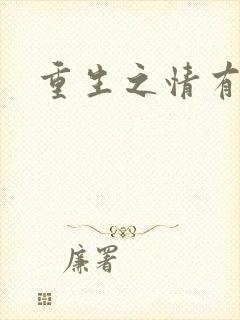 重生之情有
廉署